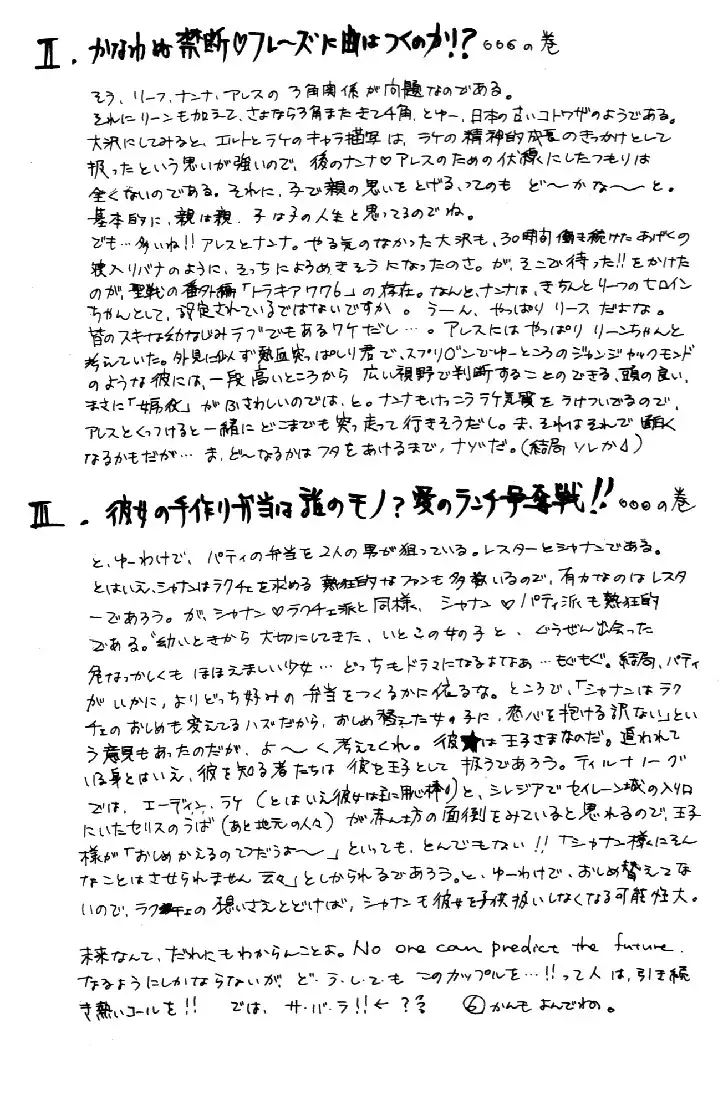 Ⅱ. かなわぬ禁断♡フレーズに曲はつくのか!? 。。。の巻
そう、リーフ、ナンナ、アレスの3角関係が問題なのである。
それにリーンも加えて、さよなら3角またきて4角、とゆー、日本の古いコトワザのようである。
大沢にしてみると、エルトとラケのキャラ描写は、ラケの精神的成長のきっかけとして
扱ったという思いが強いので、後のナンナ♡アレスのための伏線にしたつもりは
全くないのである。それに、子で親の思いをとげる、ってのも ど〜かな〜〜と。
基本的に、親は親、子は子の人生と思ってるのでね。
でも…多いね!! アレスとナンナ。やる気のなかった大沢も、30時間働き続けたあげくの
リバナのように、そっちによろめきそうになったのさ。が、そこで待った!!をかけた
のが、聖戦の番外編「トラキア776」の存在。なんと、ナンナは、きちんとリーフのヒロイン
ちゃんとして、設定されているではないですか。うーん、やっぱり リーフ だよな。
皆のスキな幼なじみラブでもあるワケだし…。アレスにはやっぱり リーンちゃんと
考えていた。外見に似ず熱血突っぱしり君で、スプリガンでゆーところのジャンジャックモンド
のような彼には、一段高いところから 広い視野で判断することのできる、頭の良い、
まさに「姉役」がふさわしいのでは、と。ナンナもけっこうラケ気質をうけついでるので、
アレスとくっつけると一緒にどこまでも突っ走って行きそうだし。ま、それはそれで面白く
なるかもだが… ま、どんなるかはフタをあけるまで、ナゾだ。(結局ソレか)
Ⅲ. 彼女の手作り弁当は誰のモノ？愛のランチ争奪戦!! 。。。の巻
と、ゆーわけで、パティの弁当を2人の男が狙っている。レスターとシャナンである。
とはいえ、シャナンはラクチェを求める 熱狂的なファンも多数いるので、有力なのはレスタ
ーであろう。が、シャナン♡ラクチェ派と同様、シャナン♡パティ派も熱狂的
である。幼いときから大切にしてきた、いとこの女の子と、ぐうぜん出会った
危なっかしくも ほほえましい少女… どっちもドラマになるよなあ…もぐもぐ。結局、パティ
がいかに、よりどっち好みの弁当をつくるかに依るな。ところで、「シャナンはラク
チェのおしめも変えてるハズだから、おしめ替えた女の子に、恋心を抱ける訳ない」とい
う意見もあったのだが、よ〜〜く考えてくれ。彼は王子さまなのだ。追われて
いる身とはいえ、彼を知る者たちは 彼を王子として 扱うであろう。ティルナノーグ
では、エーディン、ラケ(とはいえ彼女は主に用心棒)と、シレジアでセイレーン城の入り口
にいたセリスのうば(あと地元の人々)が赤ん坊の面倒をみていると思われるので、王子
様が「おしめかえるのてつだうよ〜」といっても、とんでもない!!「シャナン様にそん
なことはさせられません 云々」としかられるであろう。と、ゆーわけで、おしめ替えてな
いので、ラクチェの想いさえとどけば、シャナンも彼女を子供扱いしなくなる可能性大。
未来なんて、だれにもわからんことよ。No one can predict the future.
なるようにしかならないが、ど・う・しても このカップルを…!!って人は、引き続
き熱いコールを!! では、サ・バ・ラ!!←？ ⑥かんもよんでねの。